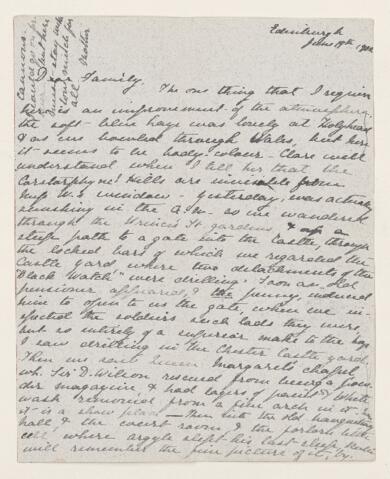 Edinburgh
June 19th, 1900
Family, The one thing that I require
here is an improvement of the atmosphere
the soft blue haze was lovely at Holyhead
& as we bowled through Wales, but here
it seems to be body colour - Clare will
understand when I tell her that the
Corstorphine Hills are invisible from
Miss W's windows - yesterday, was actually
sunshiny in the a.m. as we wandered
through the Princes St gardens & up a
steep path to a gate into the Castle, through
the locked bars of which we regarded the
Castle yard where two detachments of the
"Black Watch" were drilling. Soon an old
pensioner appeared & the penny, induced
him to open to us the gate, when we in-
spected the soldiers such lads they were,
but so entirely of a superior make to the boys
I saw drilling in the Chester Castle yard.
Then we saw Queen Margaret's chapel,
wh. Sir D. Wilson rescued from being a pow-
der magazine & had layers of paint & white
wash removed from a fine arch in it - now
it is a show place - Then into the old banqueting
hall & the court room & the
cell where Argyle slept his last sleep, Mother
will remember the fine picture of it, by